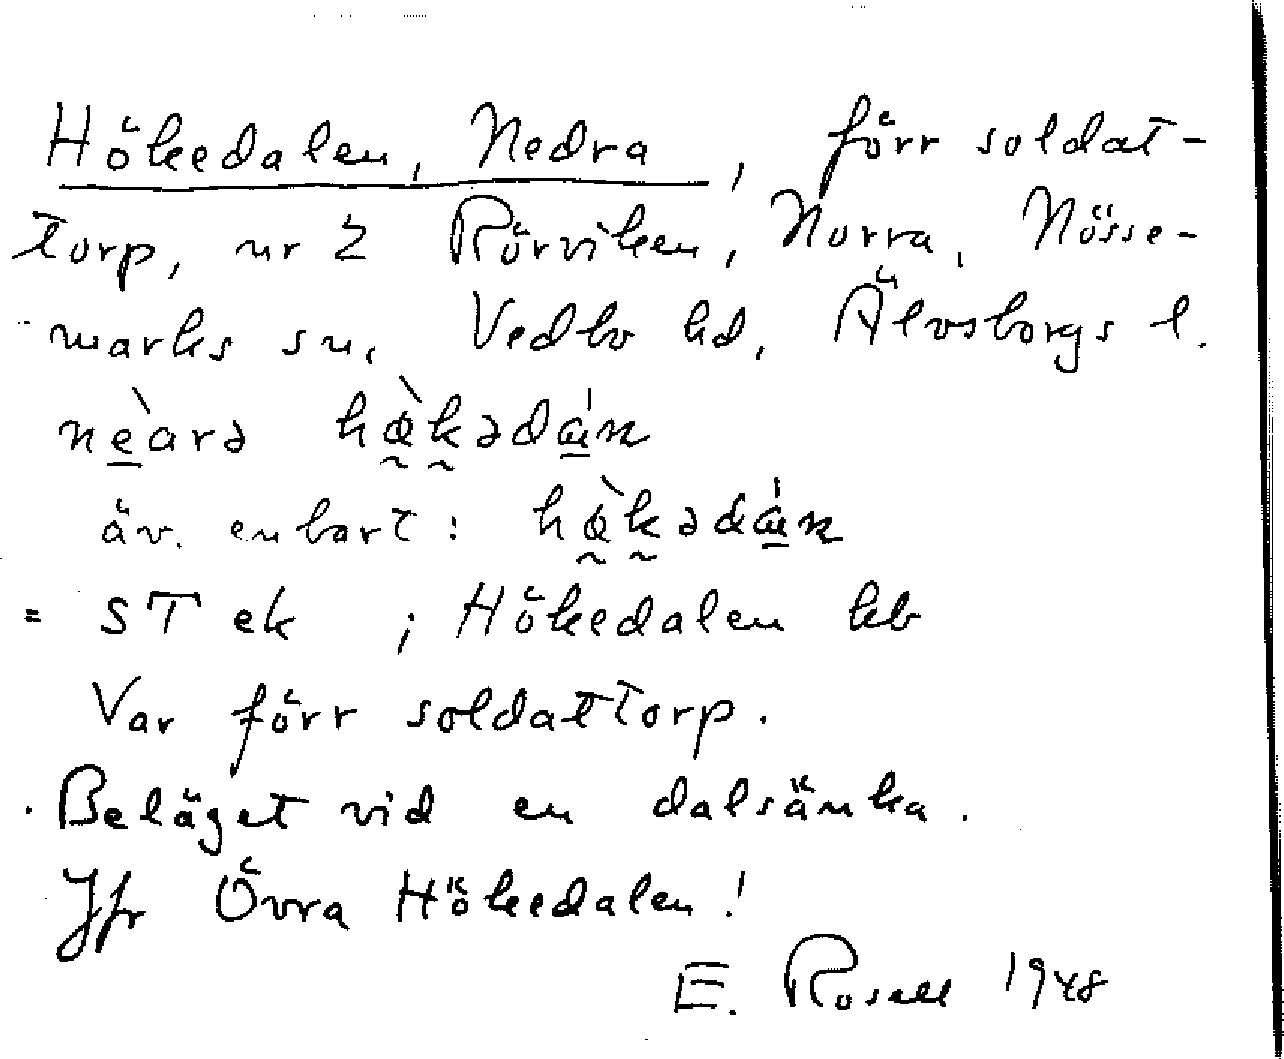 Hökedalen, Nedra, förr soldat-
torp, nr 2 Rörviken, Norra, Nösse-
marks sn, Vedbo hd, Älvsborgs l.
äv. enbart:
= ST ek ; Hökedalen kb
Var förr soldattorp.
Beläget vid en dalsänka.
Jfr Övra Hökedalen!
E. Rosell 1948